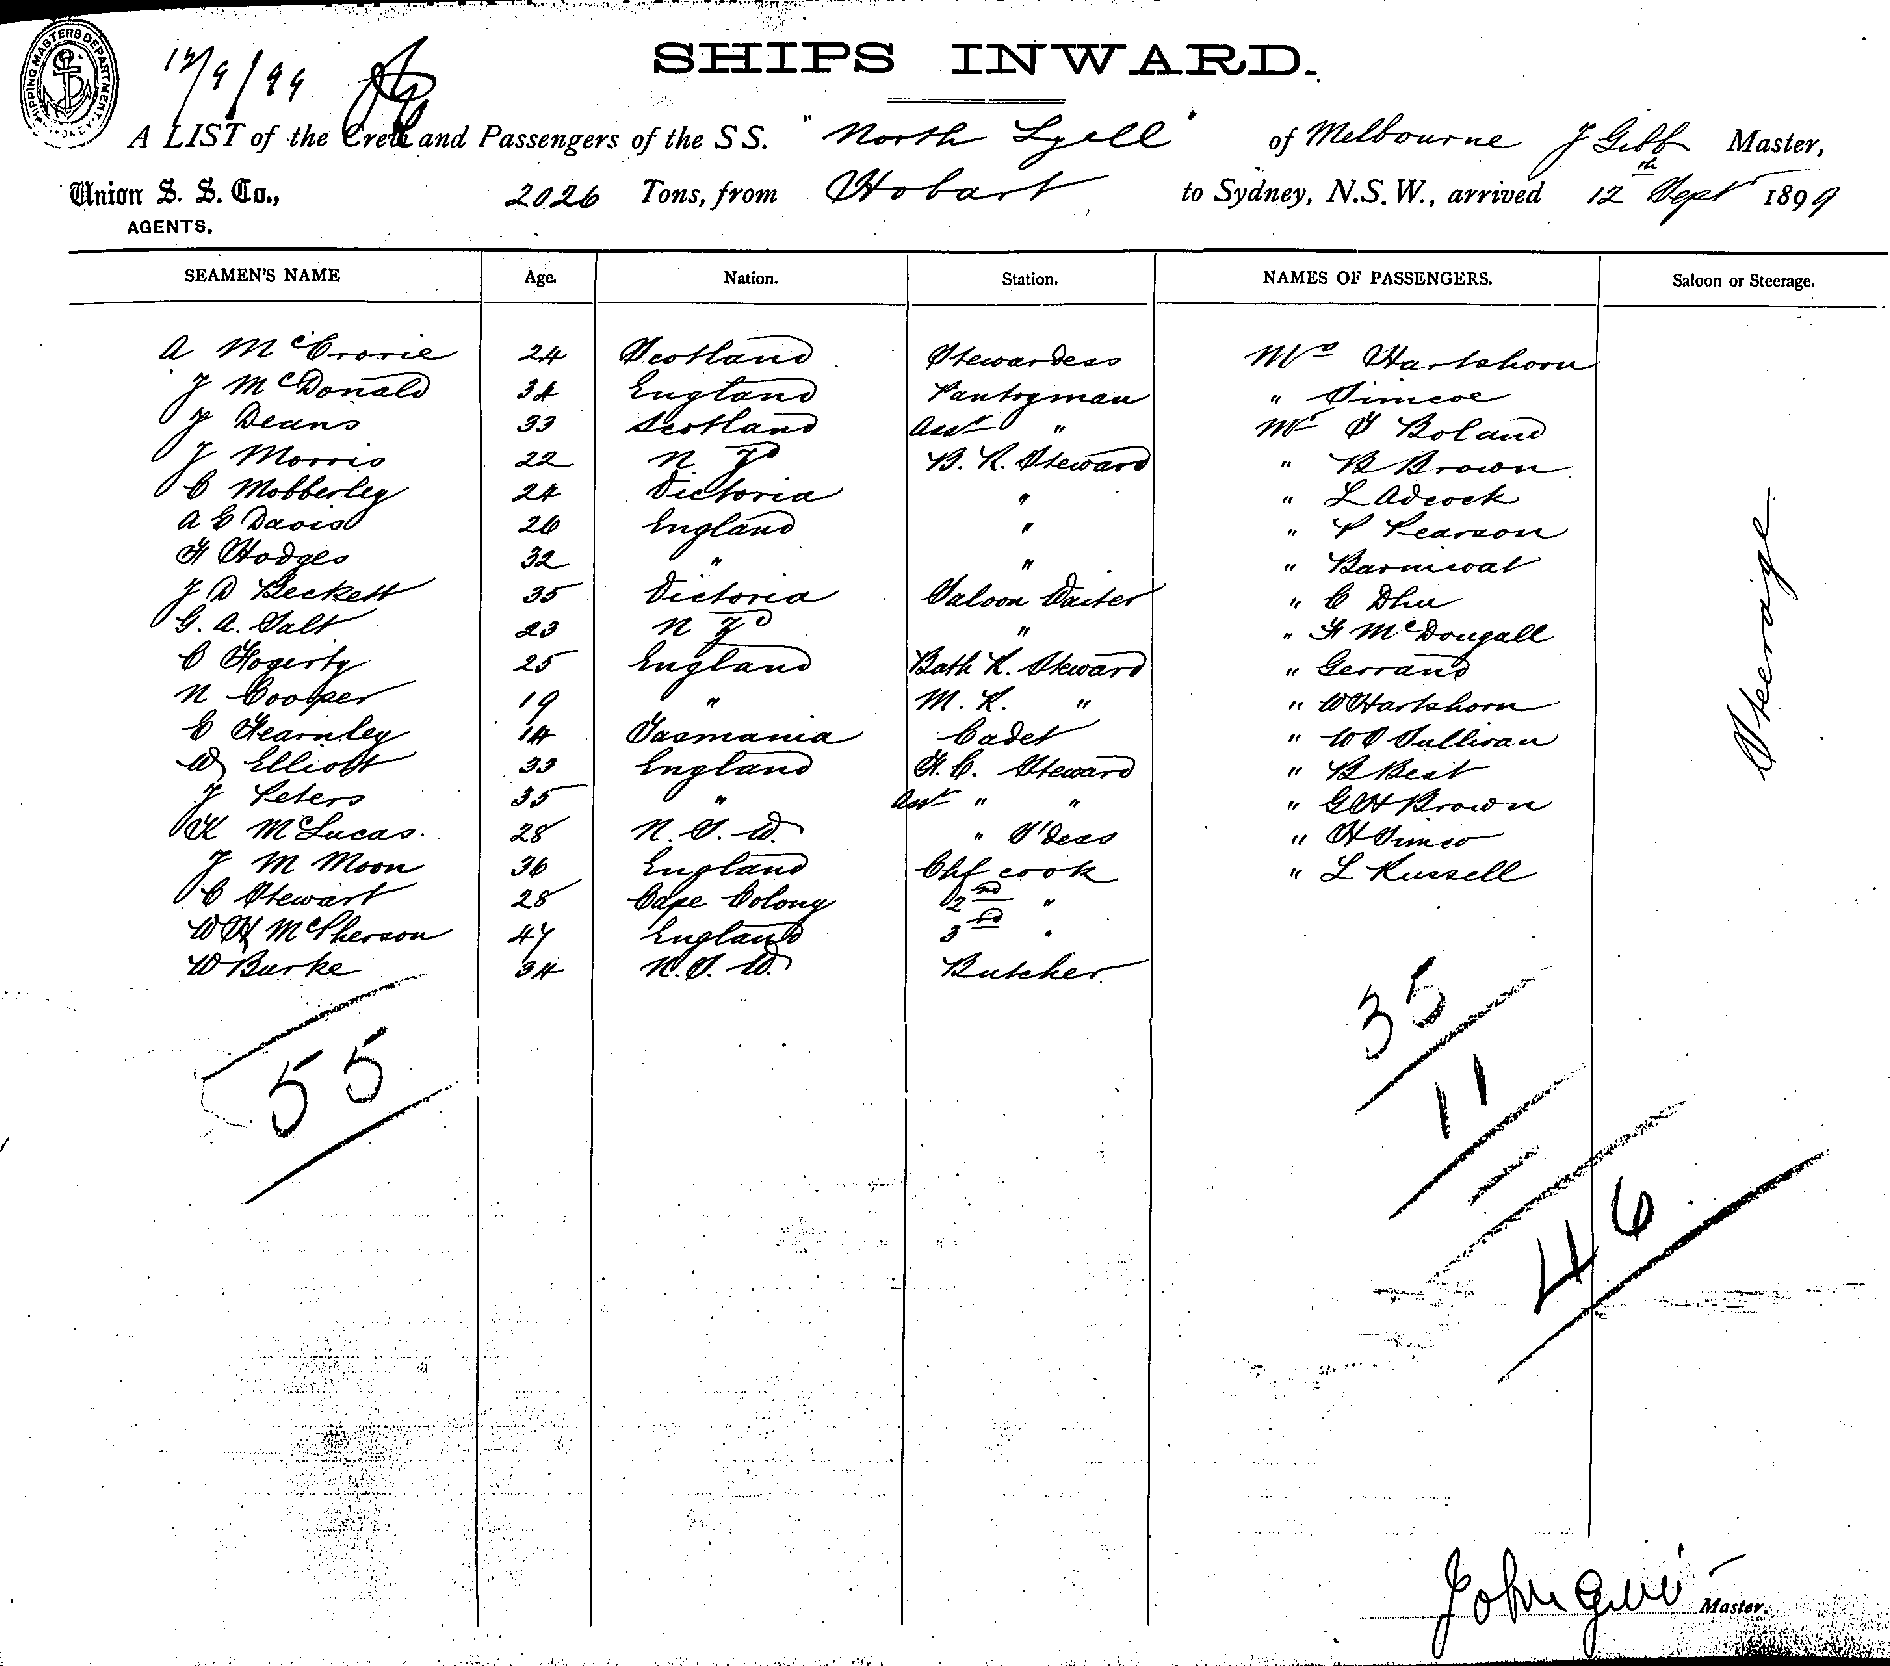 SHIPPING MASTERS DEPARTMENT
12/9/99
SHIPS INWARD.
A LIST of the Crew and Passengers of the S S. "North Lyell" of Melbourne J Gibb Master,
Union S. S. Co., 2026 Tons, from Hobart to Sydney, N.S.W., arrived 12th Sept 1899
AGENTS.
SEAMEN'S NAME Age. Nation. Station. NAMES OF PASSENGERS. Saloon or Steerage.
A McCrorie 24 Scotland Stewardess Mrs Hartshorn
J McDonald 34 England Pantryman " Simcoe
J Deans 33 Scotland Asst " Mr J Boland
J Morris 22 N Zd B. R. Steward " B Brown
C Mobberley 24 Victoria " " L Adcock
A E Davis 26 England " " P Pearson
H Hodges 32 " " "
J D Beckett 35 Victoria Saloon Waiter " C Dhu
G. A. Salt 23 N Zd " " H McDougall
C Fogerty 25 England Bath R. Steward " Gerrand
N Cooper 19 " M. R. " " W Hartshorn
C Fearnley 14 Tasmania Cadet " W O Sullivan
W Elliott 33 England F. C. Steward " B Best
J Peters 35 " Asst " " " G H Brown
K McLucas. 28 N. S. W. " S'dess "
J M Moon 36 England Chf cook " L Russell
C Stewart 28 Cape Colony 2nd "
W H McPherson 47 England 3rd "
W Burke 34 N. S. W. Butcher
Steerage
55
35
11
46
John Gibb Master.